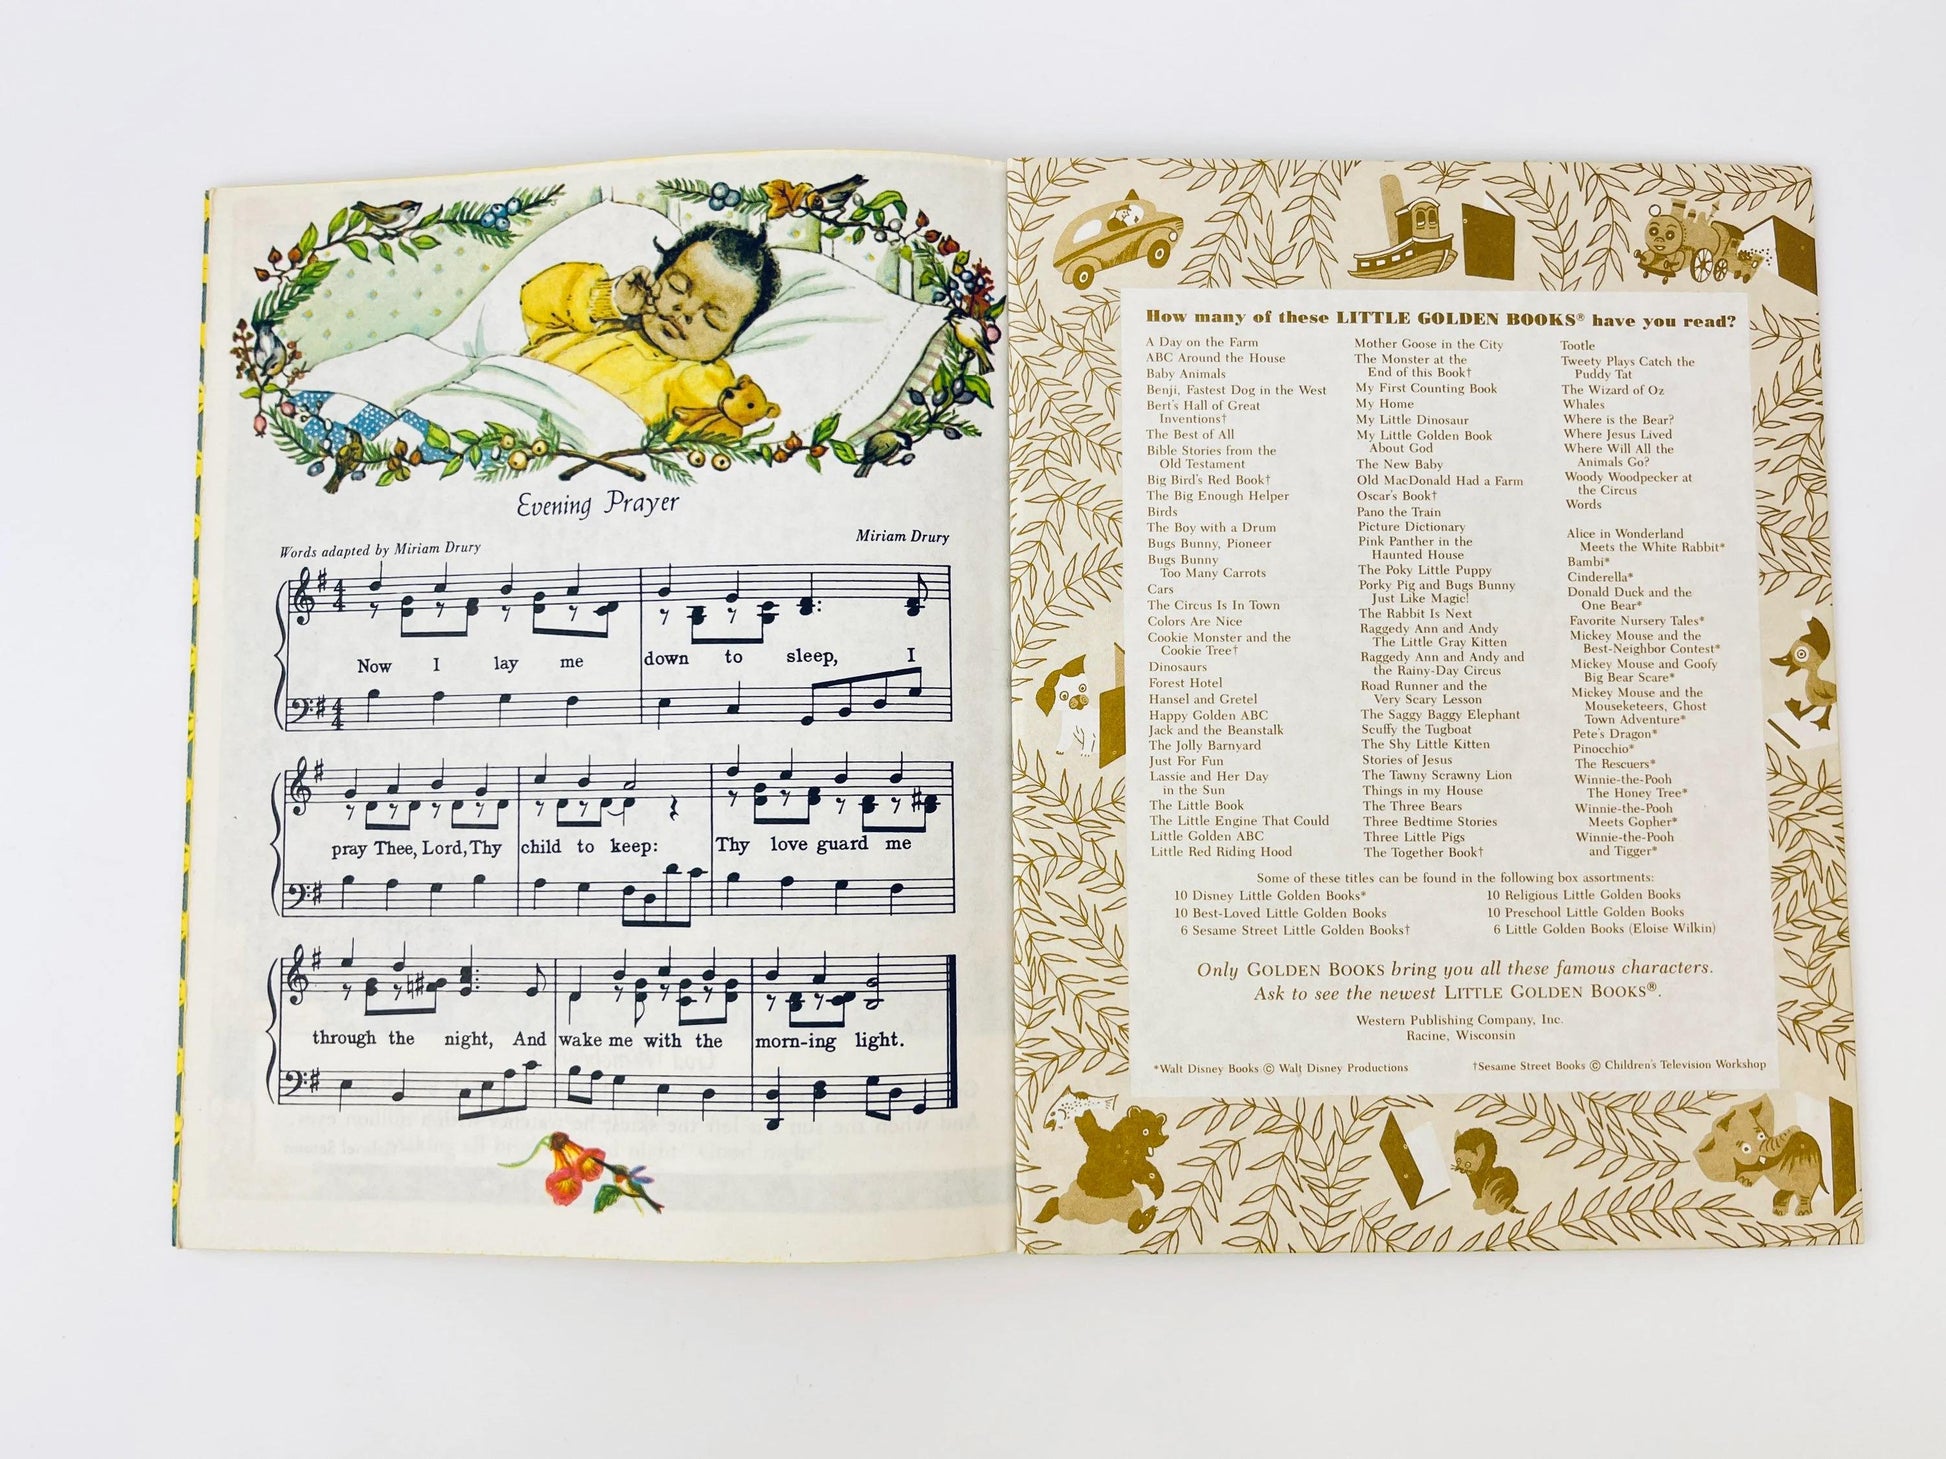 Evening Prayer
Words adapted by Miriam Drury
Miriam Drury
Now I lay me down to sleep, I
pray Thee, Lord, Thy child to keep: Thy love guard me
through the night, And wake me with the morn-ing light.
How many of these LITTLE GOLDEN BOOKS® have you read?
A Day on the Farm
ABC Around the House
Baby Animals
Benji, Fastest Dog in the West
Bert's Hall of Great
Inventions†
The Best of All
Bible Stories from the
Old Testament
Big Bird's Red Book†
The Big Enough Helper
Birds
The Boy with a Drum
Bugs Bunny, Pioneer
Bugs Bunny
Too Many Carrots
Cars
The Circus Is In Town
Colors Are Nice
Cookie Monster and the
Cookie Tree†
Dinosaurs
Forest Hotel
Hansel and Gretel
Happy Golden ABC
Jack and the Beanstalk
The Jolly Barnyard
Just For Fun
Lassie and Her Day
in the Sun
The Little Book
The Little Engine That Could
Little Golden ABC
Little Red Riding Hood
Mother Goose in the City
The Monster at the
End of this Book†
My First Counting Book
My Home
My Little Dinosaur
My Little Golden Book
About God
The New Baby
Old MacDonald Had a Farm
Oscar's Book†
Pano the Train
Picture Dictionary
Pink Panther in the
Haunted House
The Poky Little Puppy
Porky Pig and Bugs Bunny
Just Like Magic!
The Rabbit Is Next
Raggedy Ann and Andy
The Little Gray Kitten
Raggedy Ann and Andy and
the Rainy-Day Circus
Road Runner and the
Very Scary Lesson
The Saggy Baggy Elephant
Scuffy the Tugboat
The Shy Little Kitten
Stories of Jesus
The Tawny Scrawny Lion
Things in my House
The Three Bears
Three Bedtime Stories
Three Little Pigs
The Together Book†
Tootle
Tweety Plays Catch the
Puddy Tat
The Wizard of Oz
Whales
Where is the Bear?
Where Jesus Lived
Where Will All the
Animals Go?
Woody Woodpecker at
the Circus
Words
Alice in Wonderland
Meets the White Rabbit*
Bambi*
Cinderella*
Donald Duck and the
One Bear*
Favorite Nursery Tales*
Mickey Mouse and the
Best-Neighbor Contest*
Mickey Mouse and Goofy
Big Bear Scare*
Mickey Mouse and the
Mouseketeers, Ghost
Town Adventure*
Pete's Dragon*
Pinocchio*
The Rescuers*
Winnie-the-Pooh
The Honey Tree*
Winnie-the-Pooh
Meets Gopher*
Winnie-the-Pooh
and Tigger*
Some of these titles can be found in the following box assortments:
10 Disney Little Golden Books*
10 Best-Loved Little Golden Books
6 Sesame Street Little Golden Books†
10 Religious Little Golden Books
10 Preschool Little Golden Books
6 Little Golden Books (Eloise Wilkin)
Only GOLDEN BOOKS bring you all these famous characters.
Ask to see the newest LITTLE GOLDEN BOOKS®.
Western Publishing Company, Inc.
Racine, Wisconsin
*Walt Disney Books © Walt Disney Productions
†Sesame Street Books © Children's Television Workshop